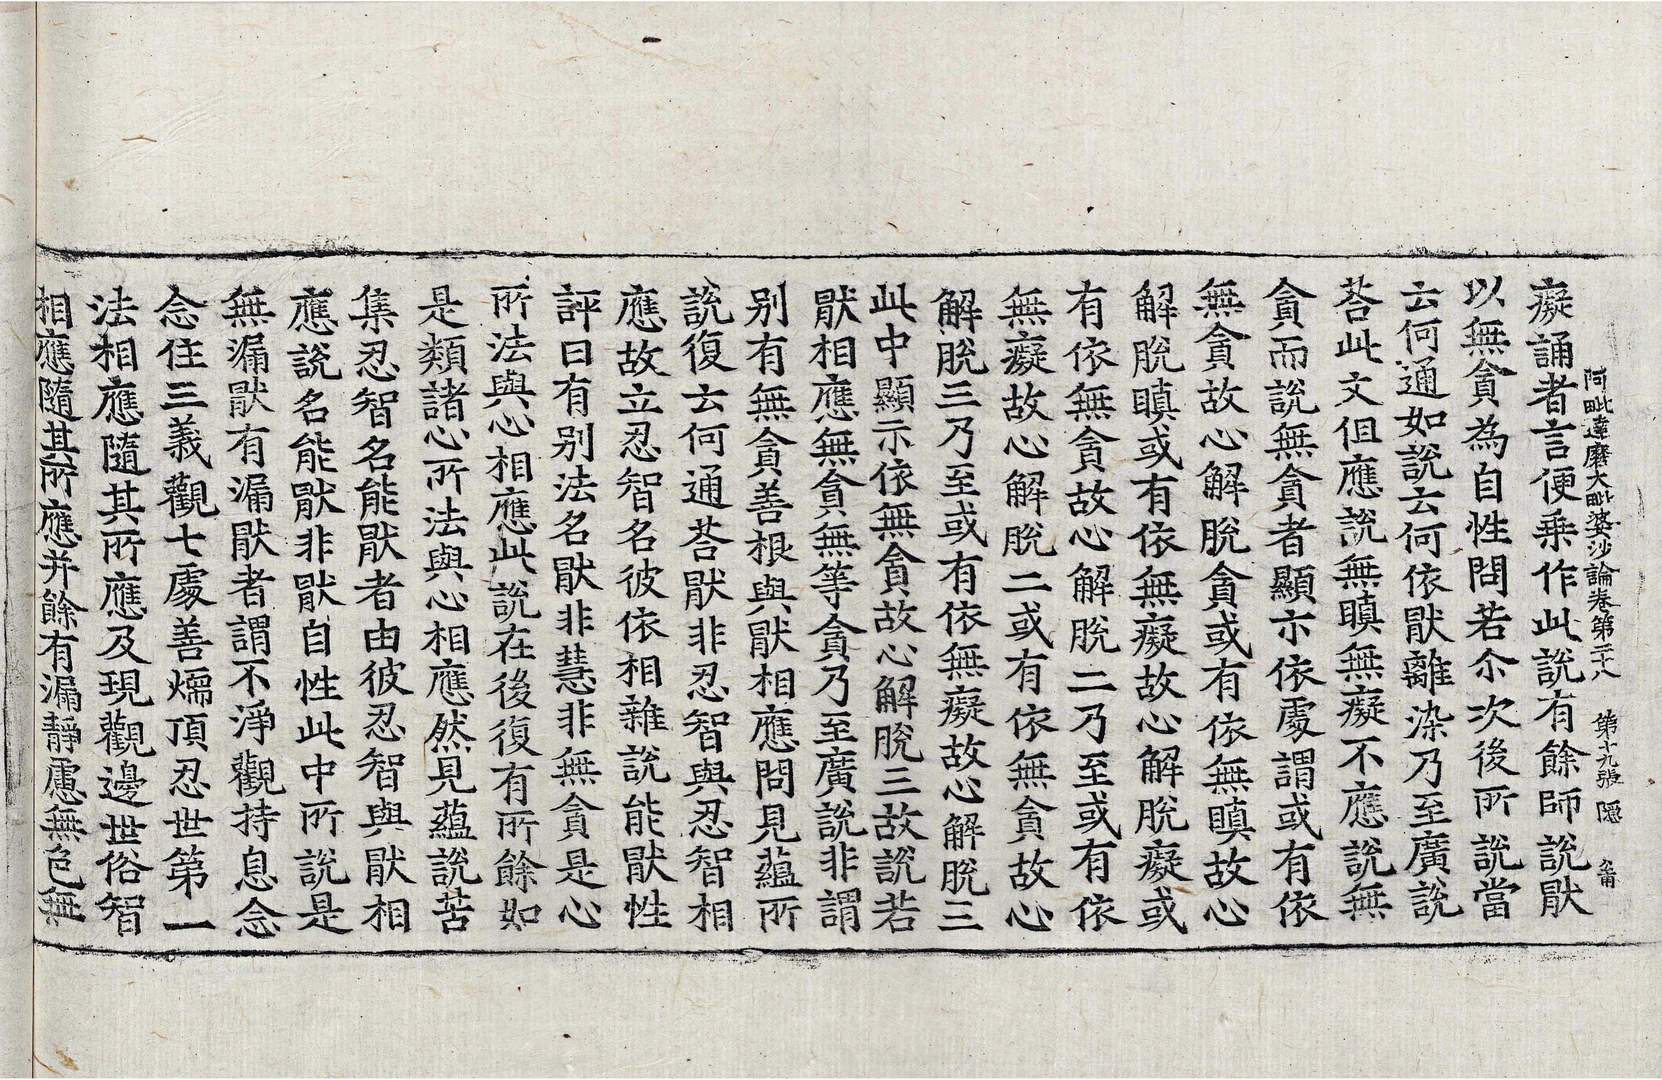 阿毗達磨大毗婆沙論卷第二十八　第十九張　隱
癡誦者言便乗作此說有餘師說猒
以無貪為自性問若尒次後所說當
云何通如說云何依猒離染乃至廣說
荅此文但應說無瞋無癡不應說無
貪而說無貪者顯示依處謂或有依
無貪故心解脫貪或有依無瞋故心
解脫瞋或有依無癡故心解脫癡或
有依無貪故心解脫二乃至或有依
無癡故心解脫二或有依無貪故心
解脫三乃至或有依無癡故心解脫三
此中顯示依無貪故心解脫三故說若
猒相應無貪無等貪乃至廣說非謂
别有無貪善根與猒相應問見蘊所
說復云何通荅猒非忍智與忍智相
應故立忍智名彼依相雜說能猒性
評曰有别法名猒非慧非無貪是心
所法與心相應此說在後復有所餘如
是類諸心所法與心相應然見蘊說苦
集忍智名能猒者由彼忍智與猒相
應說名能猒非猒自性此中所說是
無漏猒有漏猒者謂不淨觀持息念
念住三義觀七處善煗頂忍世第一
法相應隨其所應及現觀邊世俗智
相應隨其所應并餘有漏靜慮無色無